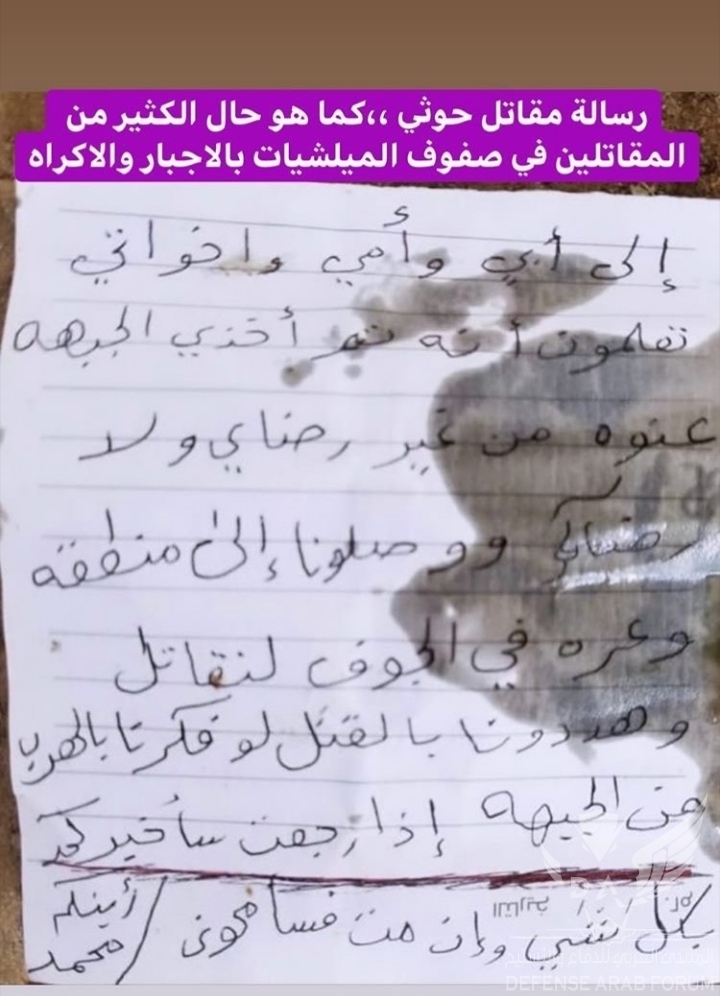 رسالة مقاتل حوثي ،،كما هو حال الكثير من
المقاتلين في صفوف الميلشيات بالاجبار والاكراه
إلى أبي وأمي واخواتي
تعلمون أنه تم أخذي الجبهه
عنوه من غير رضاي ولا
رضاكم ووصلونا إلى منطقه
وعره في الجوف لنقاتل
وهددونا بالقتل لو فكرنا بالهرب
من الجبهه إذا رجعت سأخبركم
بكل شيي وإن مت فسامحوني / أبنكم
محمد
التاريخ /
DEFENSE ARAB FORUM